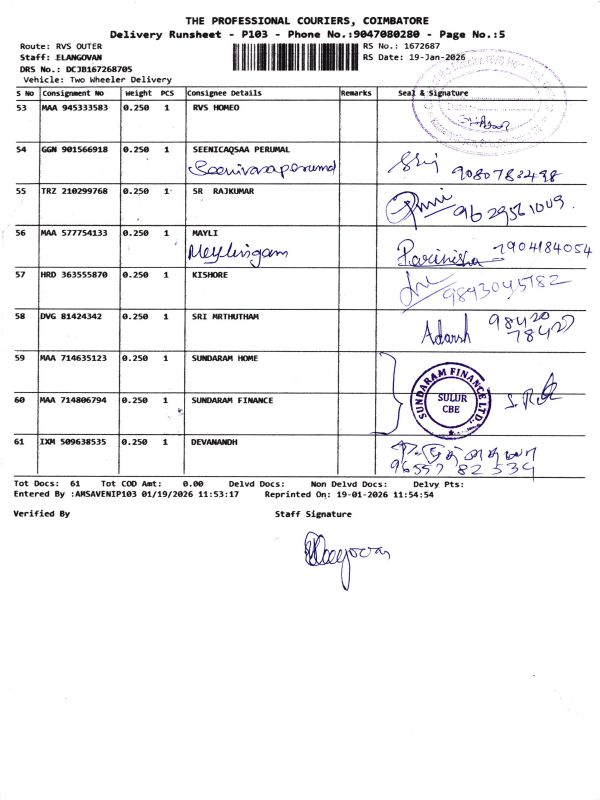 THE PROFESSIONAL COURIERS, COIMBATORE
Delivery Runsheet - P103 - Phone No.:9047080280 - Page No.:5
Route: RVS OUTER RS No.: 1672687
Staff: ELANGOVAN RS Date: 19-Jan-2026
DRS No.: DCJB167268705
Vehicle: Two Wheeler Delivery
S No Consignment No Weight PCS Consignee Details Remarks Seal & Signature
53 MAA 945333583 0.250 1 RVS HOMEO
54 GGN 901566918 0.250 1 SEENICAQSAA PERUMAL
Seenivasaperumal Srij 9080783498
55 TRZ 210299768 0.250 1 SR RAJKUMAR
9629561009
56 MAA 577754133 0.250 1 MAYLI
Meylingam Parinisha 7904184054
57 HRD 363555870 0.250 1 KISHORE
9893045782
58 DVG 81424342 0.250 1 SRI MRTHUTHAM
Adarsh 98420 78427
59 MAA 714635123 0.250 1 SUNDARAM HOME
SUNDARAM FINANCE LTD.,
SULUR
CBE
60 MAA 714806794 0.250 1 SUNDARAM FINANCE
61 IXM 509638535 0.250 1 DEVANANDH
96557 82534
Tot Docs: 61 Tot COD Amt: 0.00 Delvd Docs: Non Delvd Docs: Delvy Pts:
Entered By :AMSAVENIP103 01/19/2026 11:53:17 Reprinted On: 19-01-2026 11:54:54
Verified By Staff Signature